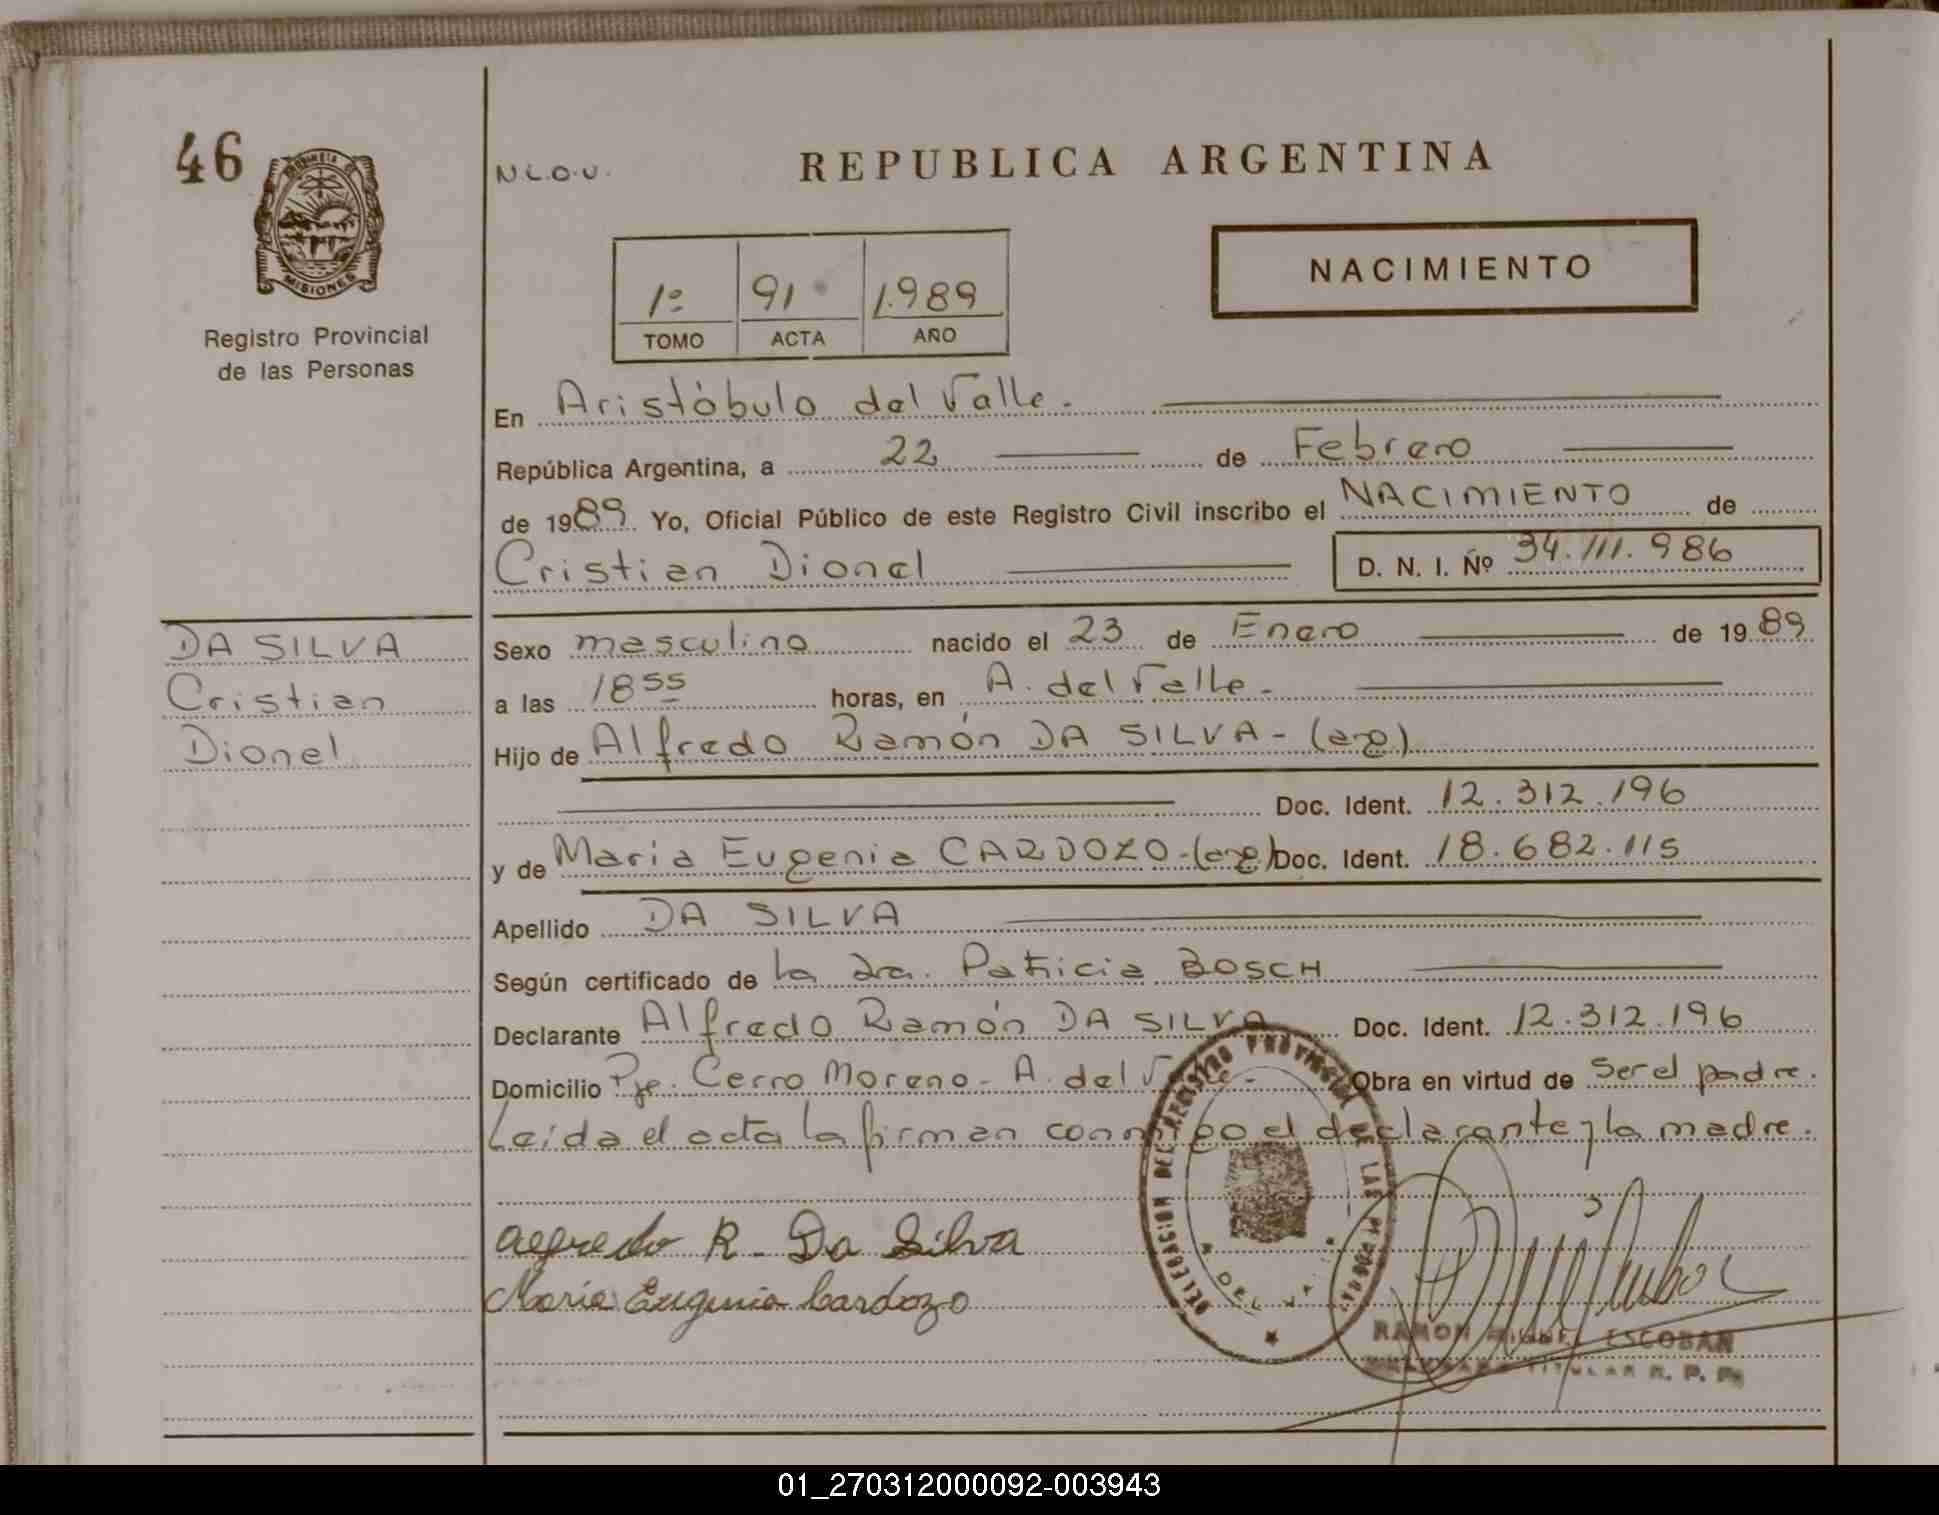 46
PROVINCIA DE
MISIONES
Registro Provincial
de las Personas
N L.O.U.
REPUBLICA ARGENTINA
NACIMIENTO
1º 91 1.989
TOMO ACTA AÑO
En Aristóbulo del Valle.
República Argentina, a 22 de Febrero
de 1989 Yo, Oficial Público de este Registro Civil inscribo el NACIMIENTO de
Cristian Dionel D. N. I. Nº 34.111.986
DA SILVA
Cristian
Dionel
Sexo masculino nacido el 23 de Enero de 1989
a las 18 55 horas, en A. del Valle.
Hijo de Alfredo Ramón DA SILVA - (arg)
Doc. Ident. 12.312.196
y de Maria Eugenia CARDOZO - (arg) Doc. Ident. 18.682.115
Apellido DA SILVA
Según certificado de la Dra. Patricia BOSCH
Declarante Alfredo Ramón DA SILVA Doc. Ident. 12.312.196
Domicilio Pje. Cerro Moreno - A. del Valle - Obra en virtud de Ser el padre.
Leida el acta la firman conmigo el declarante y la madre.
DELEGACION DEL REGISTRO PROVINCIAL DE LAS PERSONAS
A. DEL VALLE
Alfredo R. Da Silva
María Eugenia Cardozo
RAMON MIGUEL ESCOBAR
TITULAR R. P. P.
01_270312000092-003943